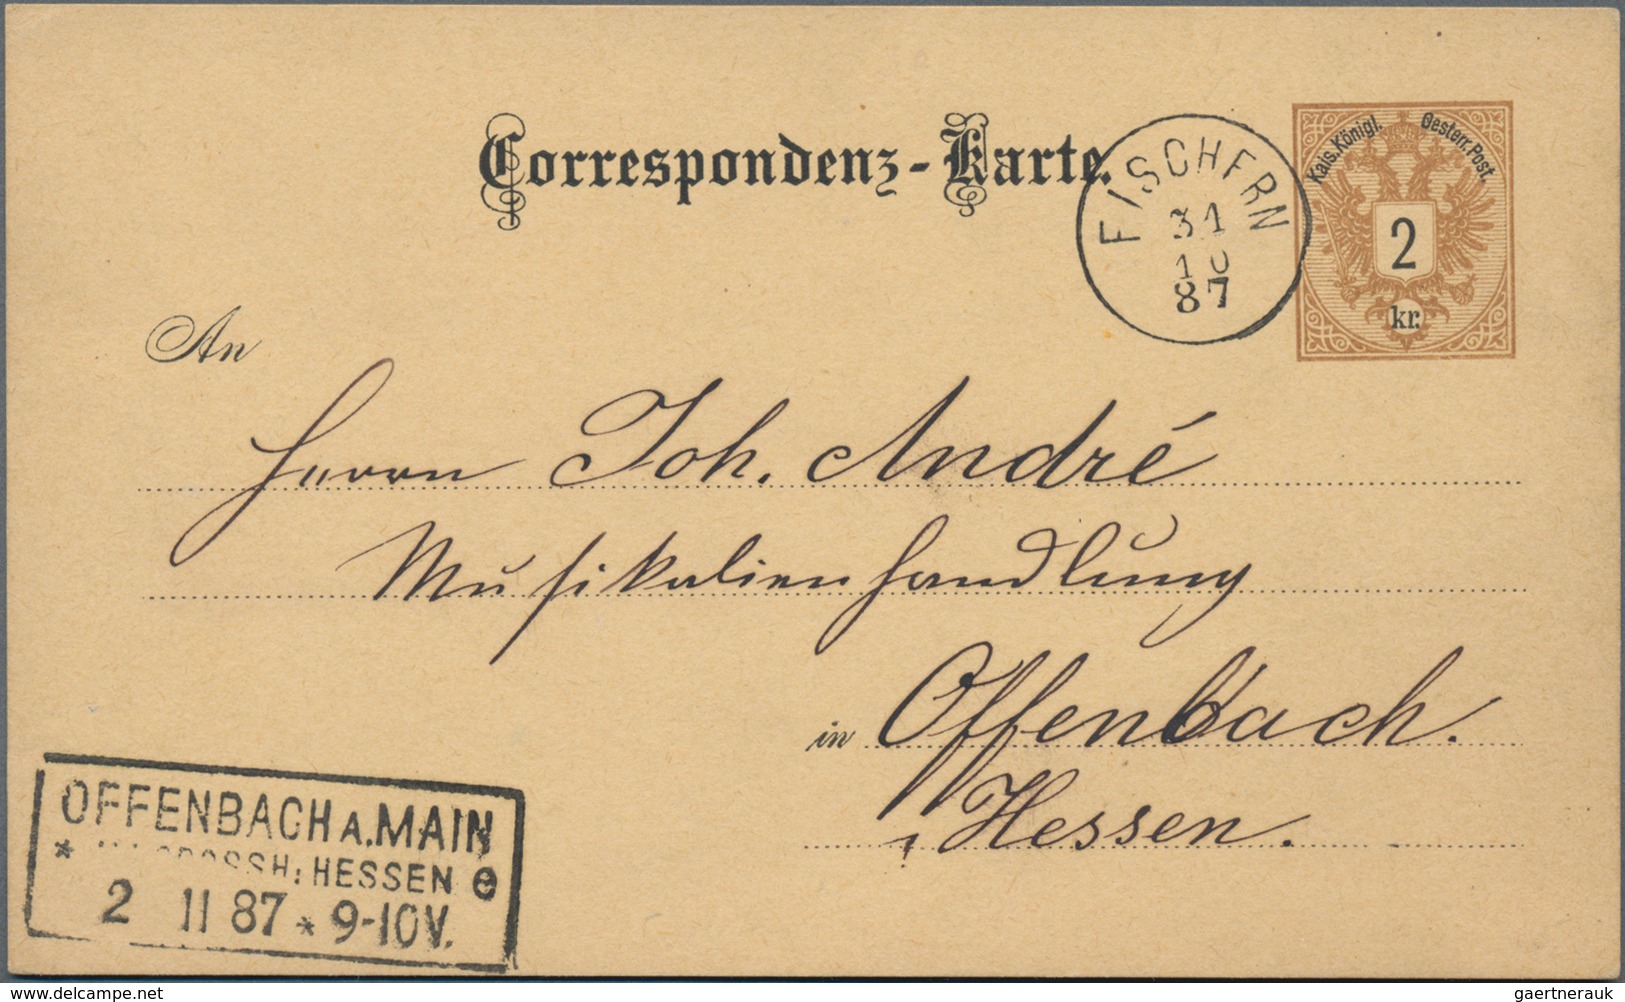 Correspondenz-Karte.
Kais. Königl. Oesterr. Post.
2
kr.
FISCHERN
31
10
87
An
Herrn Joh. André
Musikalienhandlung
in Offenbach.
Hessen.
OFFENBACH A. MAIN
* GROSSH: HESSEN e
2 11 87 * 9-10V.
www.delcampe.net
gaertnerauk